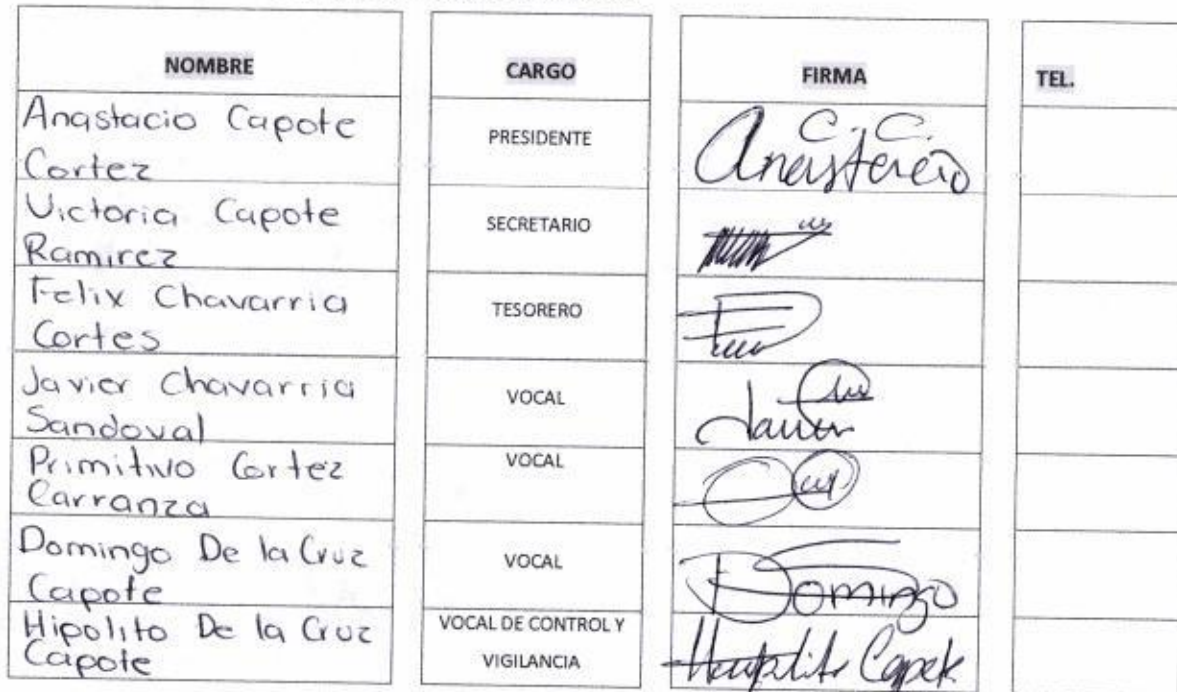 NOMBRE CARGO FIRMA TEL.
Anastacio Capote
Cortez
PRESIDENTE
C. C.
Anastacio
Victoria Capote
Ramirez
SECRETARIO
Felix Chavarria
Cortes
TESORERO
Javier Chavarria
Sandoval
VOCAL
Javier
Primitivo Cortez
Carranza
VOCAL
Domingo De la Cruz
Capote
VOCAL
Domingo
Hipolito De la Cruz
Capote
VOCAL DE CONTROL Y
VIGILANCIA